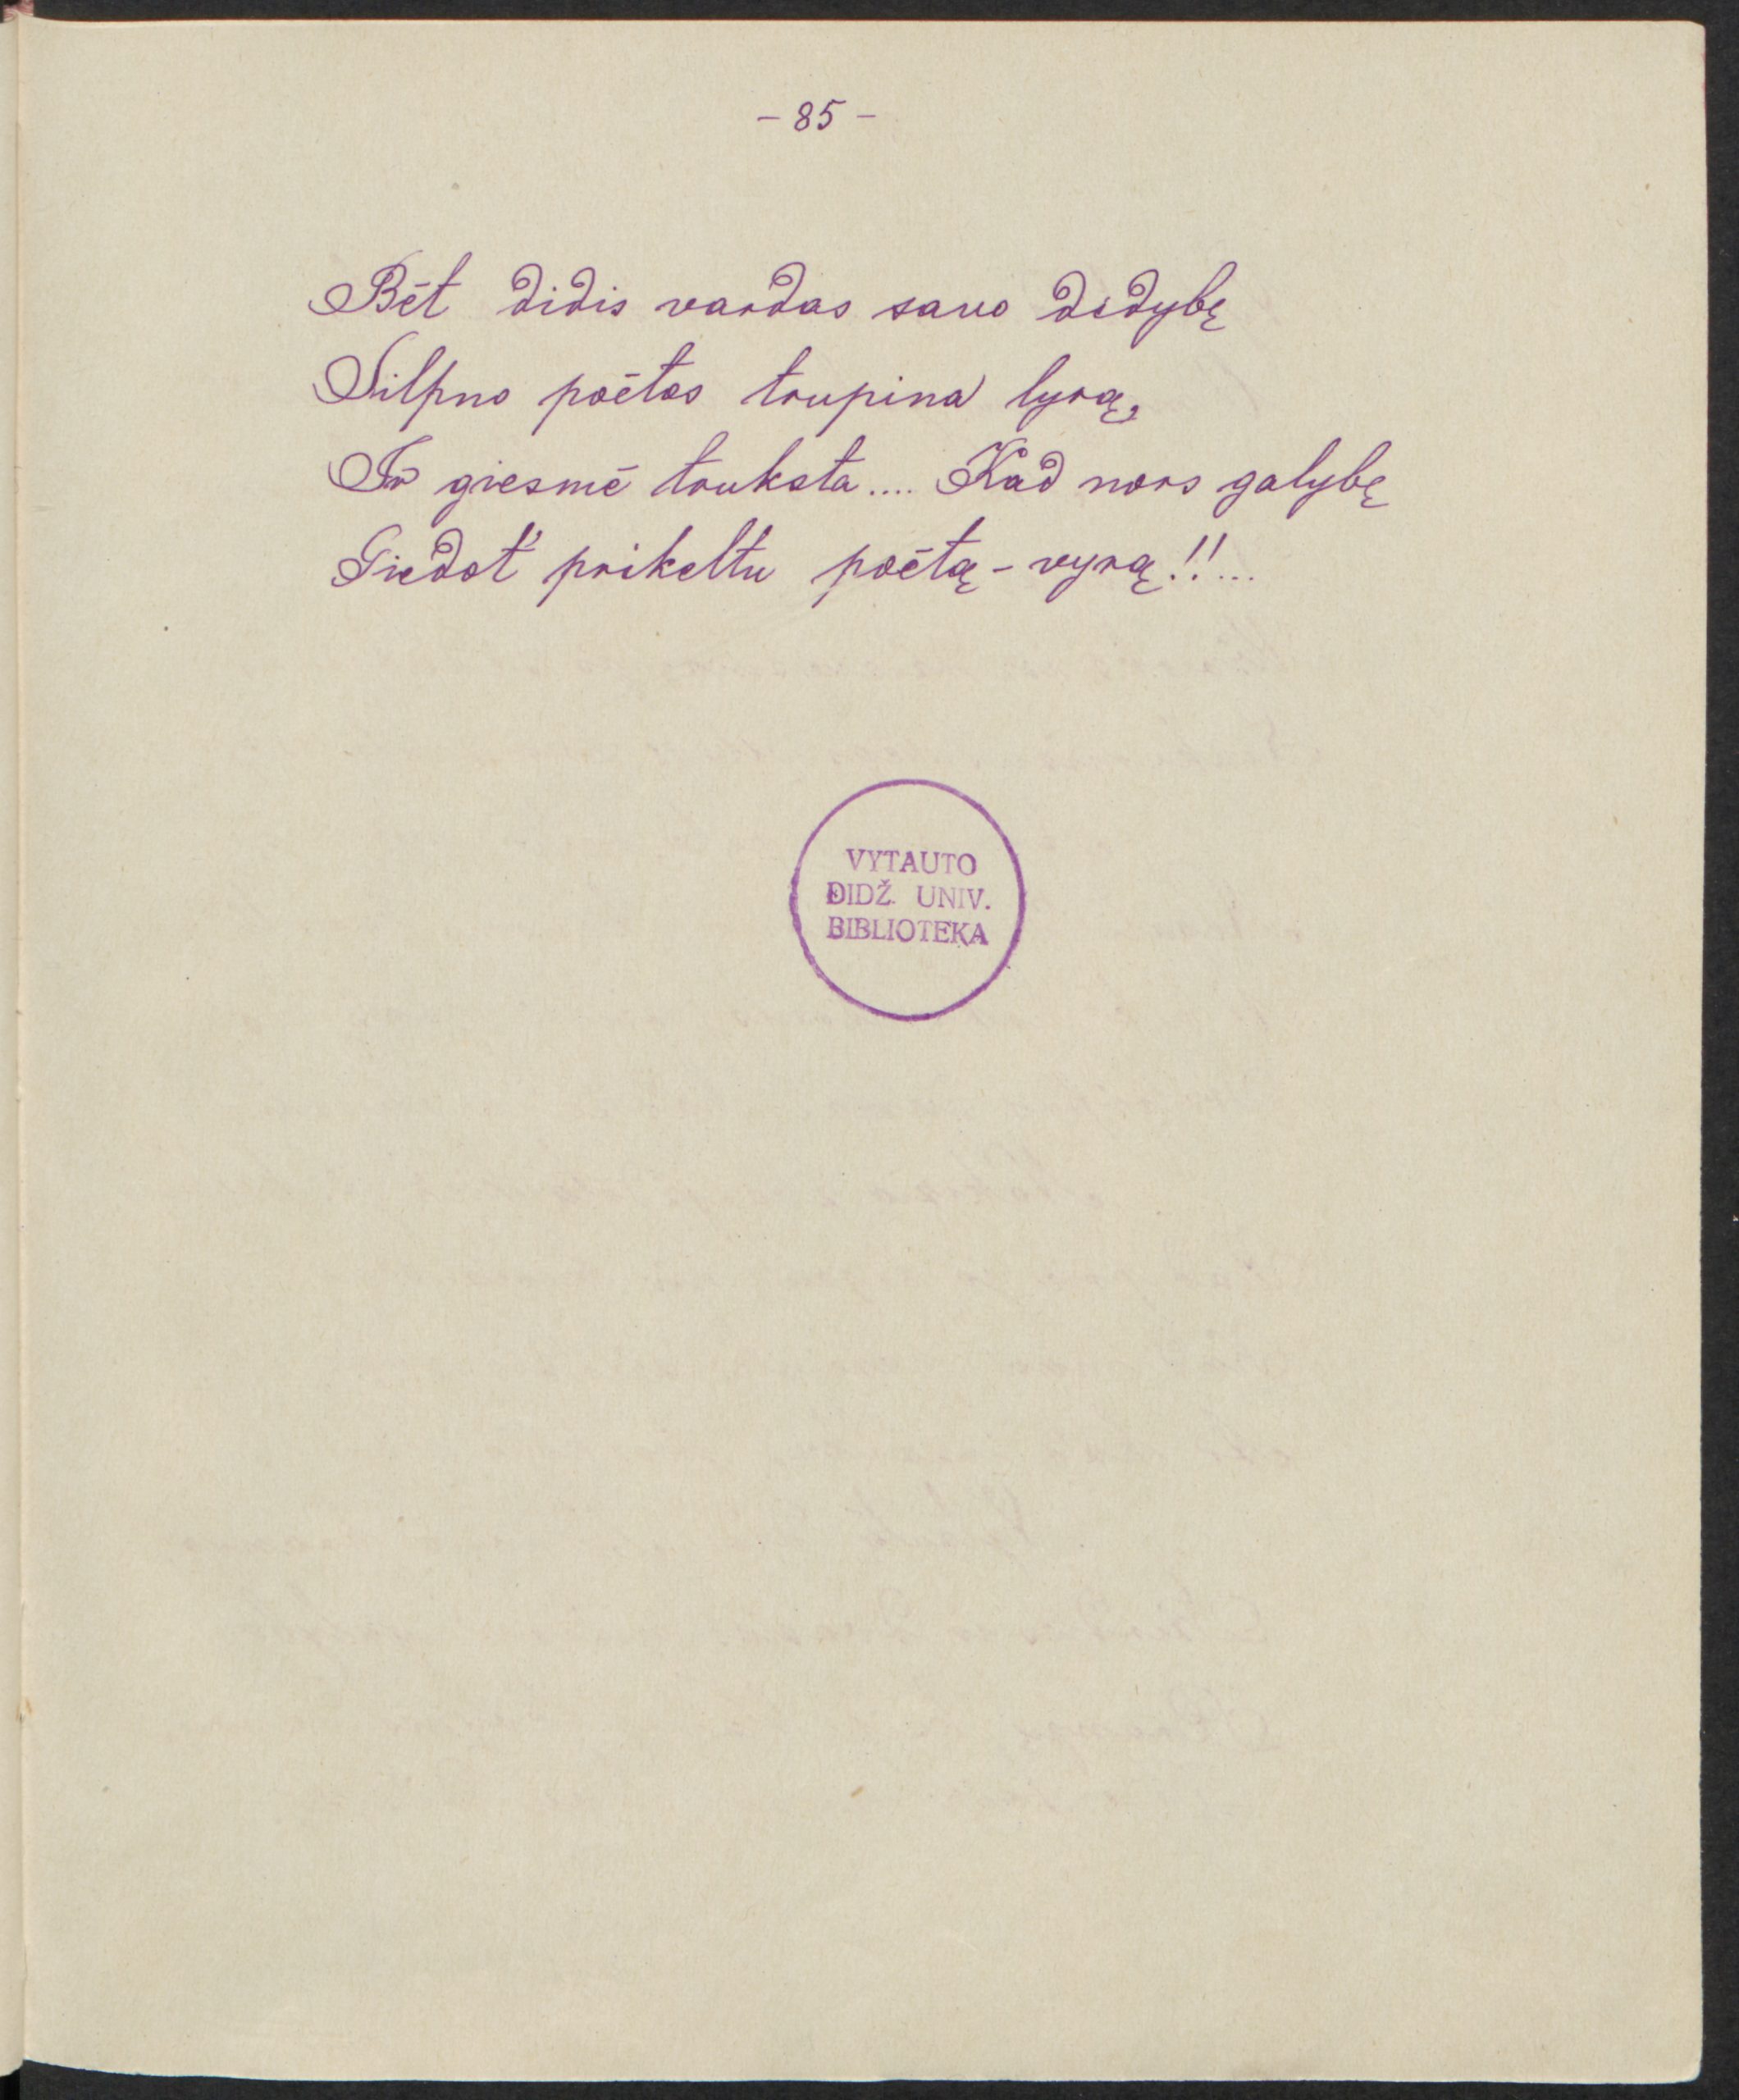 - 85 -
Bėt didis vardas savo didybę
Silpno poėtos trupina lyrą,
Ir giesmė truksta.... Kad nors galybę
Giedot' prikeltu poėtą - vyrą!!...
VYTAUTO
DIDŽ. UNIV.
BIBLIOTEKA